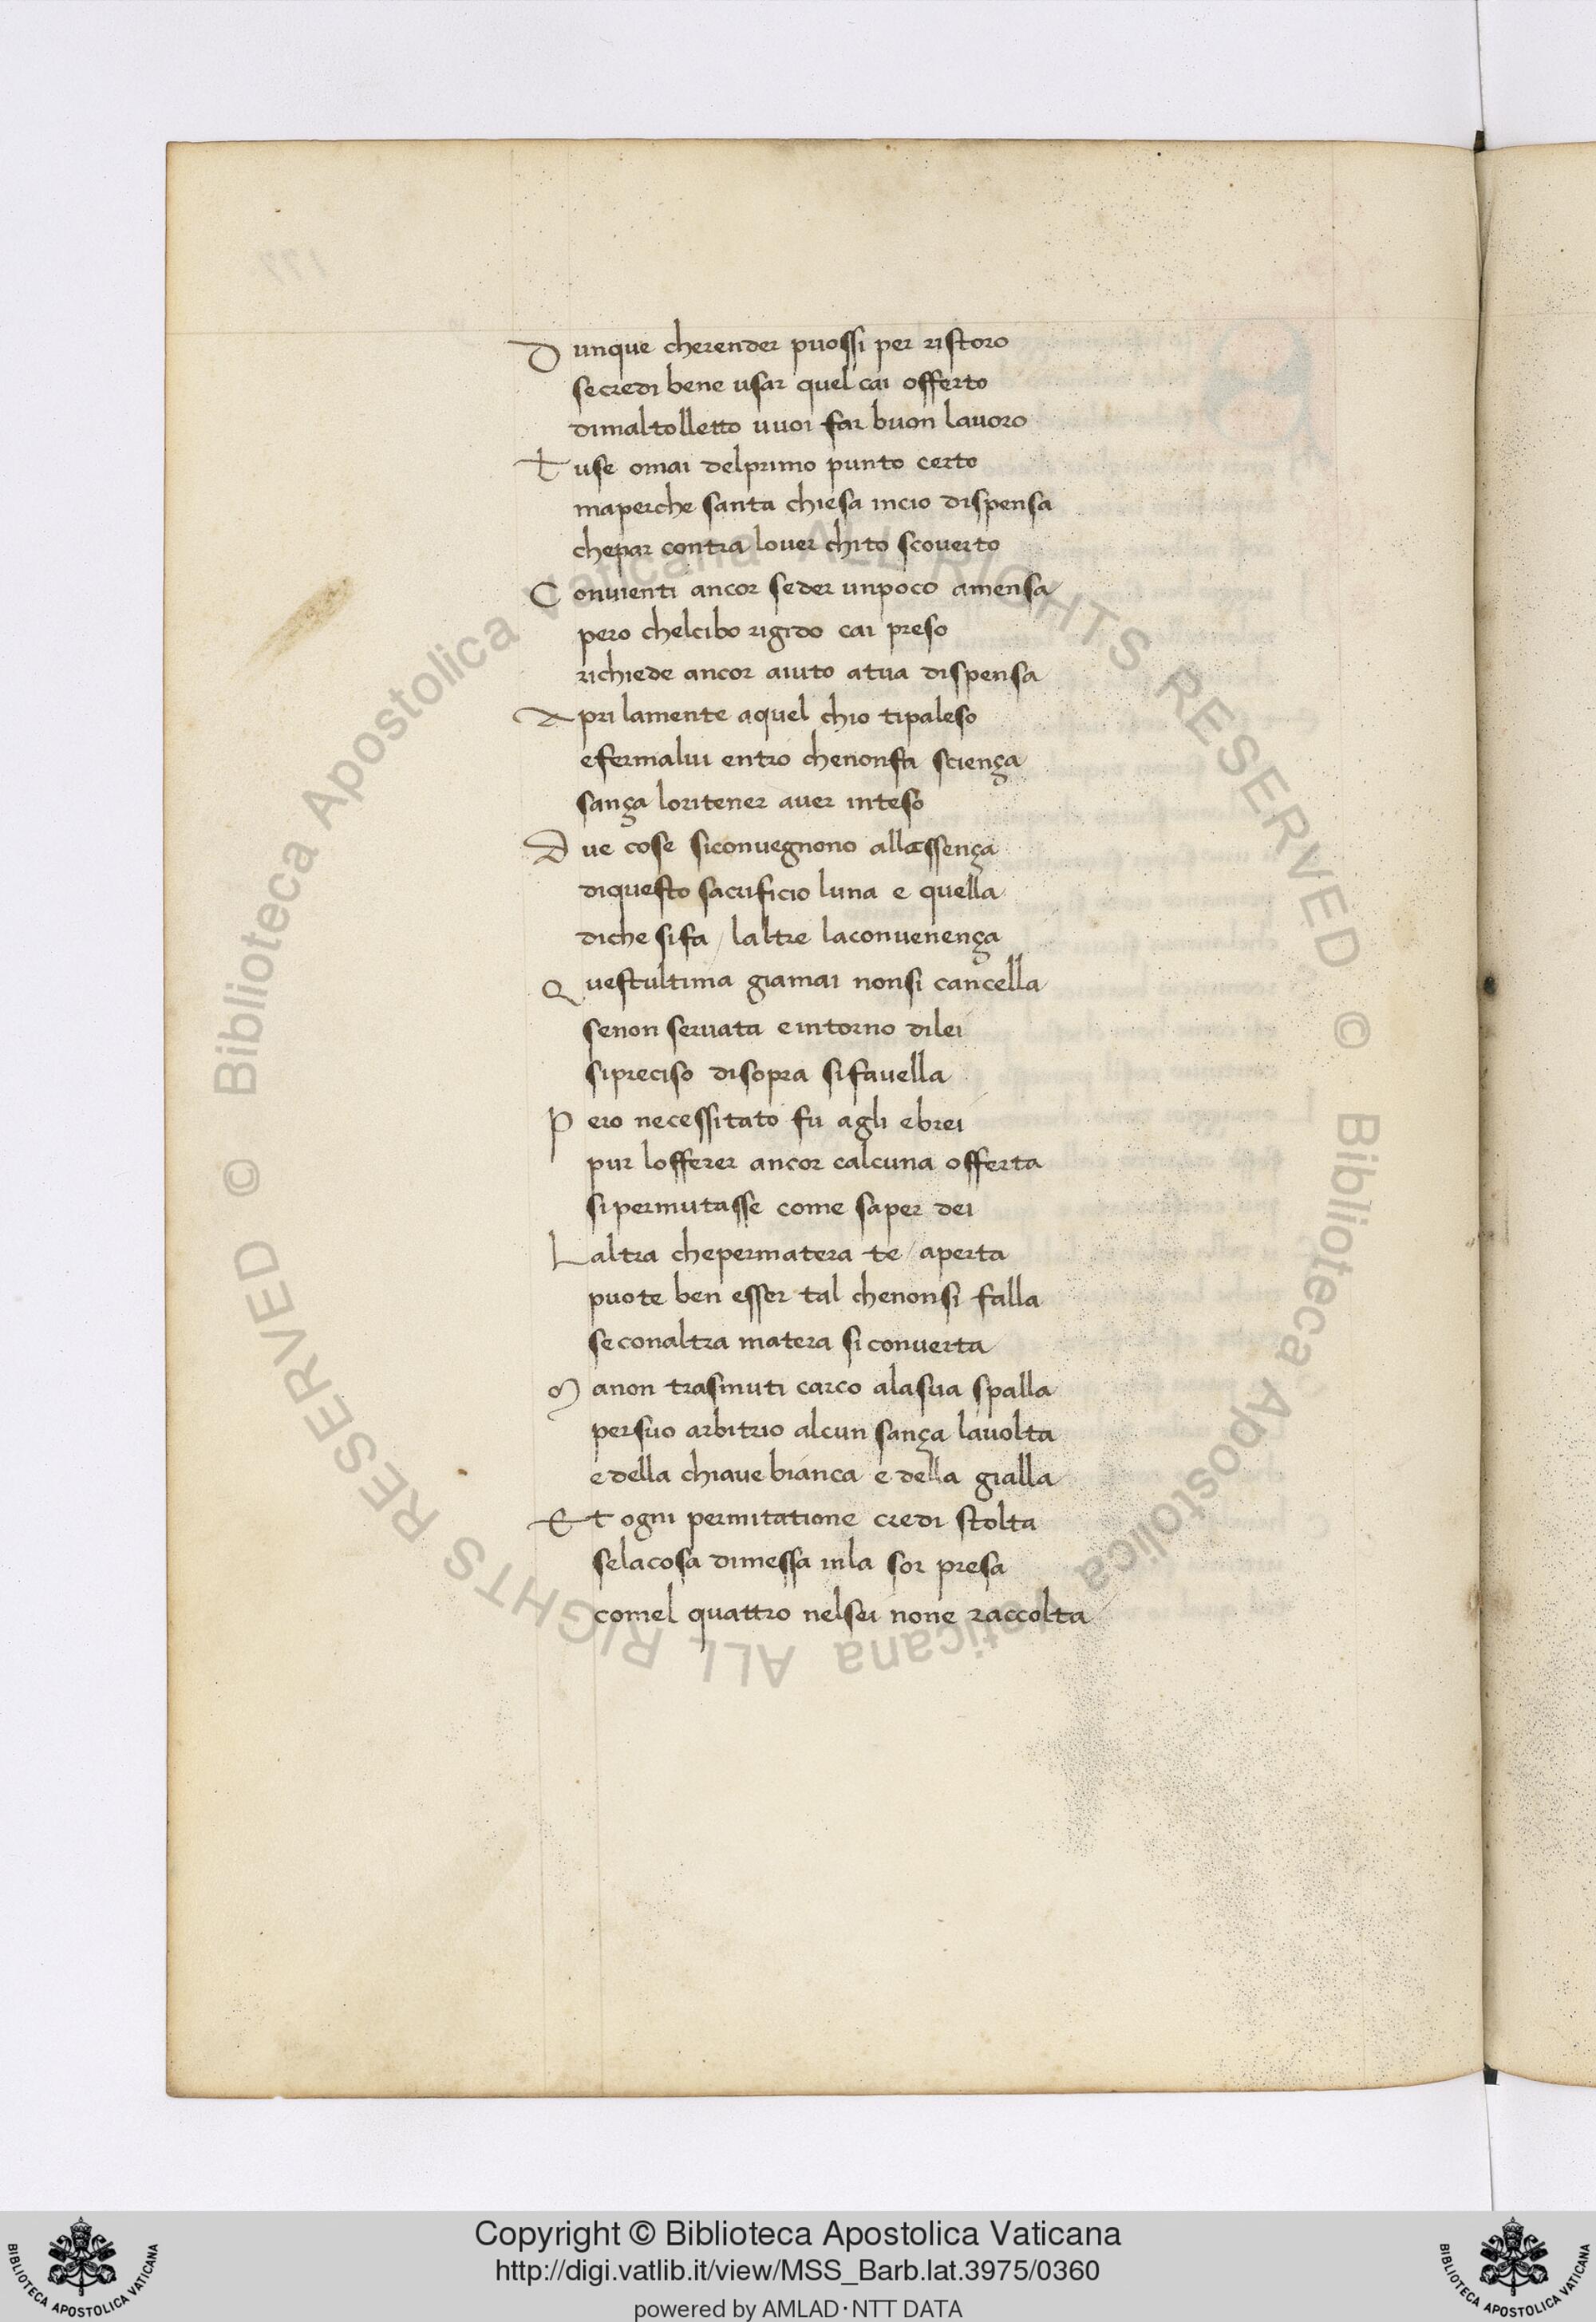 Dunque cherender puossi per ristoro
secredi bene usar quel cai offerto
dimaltolletto vuoi far buon lavoro
Tuse omai delprimo punto certo
maperche santa chiesa incio dispensa
chepar contra lover chito scoverto
Convienti ancor seder unpoco amensa
pero chelcibo rigido cai preso
richiede ancor aiuto atua dispensa
Apri lamente aquel chio tipaleso
efermalvi entro chenonfa sciença
sança loritener aver inteso
Due cose siconvegnono allessença
diquesto sacrificio luna e quella
diche sifa / laltre laconvenença
Questultima giamai nonsi cancella
senon servata eintorno dilei
sipreciso disopra sifavella
Pero necessitato fu agli ebrei
pur lofferer ancor calcuna offerta
sipermutasse come saper dei
Laltra chepermatera te / aperta
puote ben esser tal chenonsi falla
seconaltra matera siconverta
Manon trasmuti carco alasua spalla
persuo arbitrio alcun sança lavolta
edella chiave bianca e della gialla
Et ogni permitatione credi stolta
selacosa dimessa inla sor presa
comel quattro nelsei none raccolta
177
© Biblioteca Apostolica Vaticana ALL RIGHTS RESERVED © Biblioteca Apostolica Vaticana ALL RIGHTS RESERVED
Copyright © Biblioteca Apostolica Vaticana
http://digi.vatlib.it/view/MSS_Barb.lat.3975/0360
powered by AMLAD·NTT DATA
BIBLIOTECA APOSTOLICA VATICANA
BIBLIOTECA APOSTOLICA VATICANA